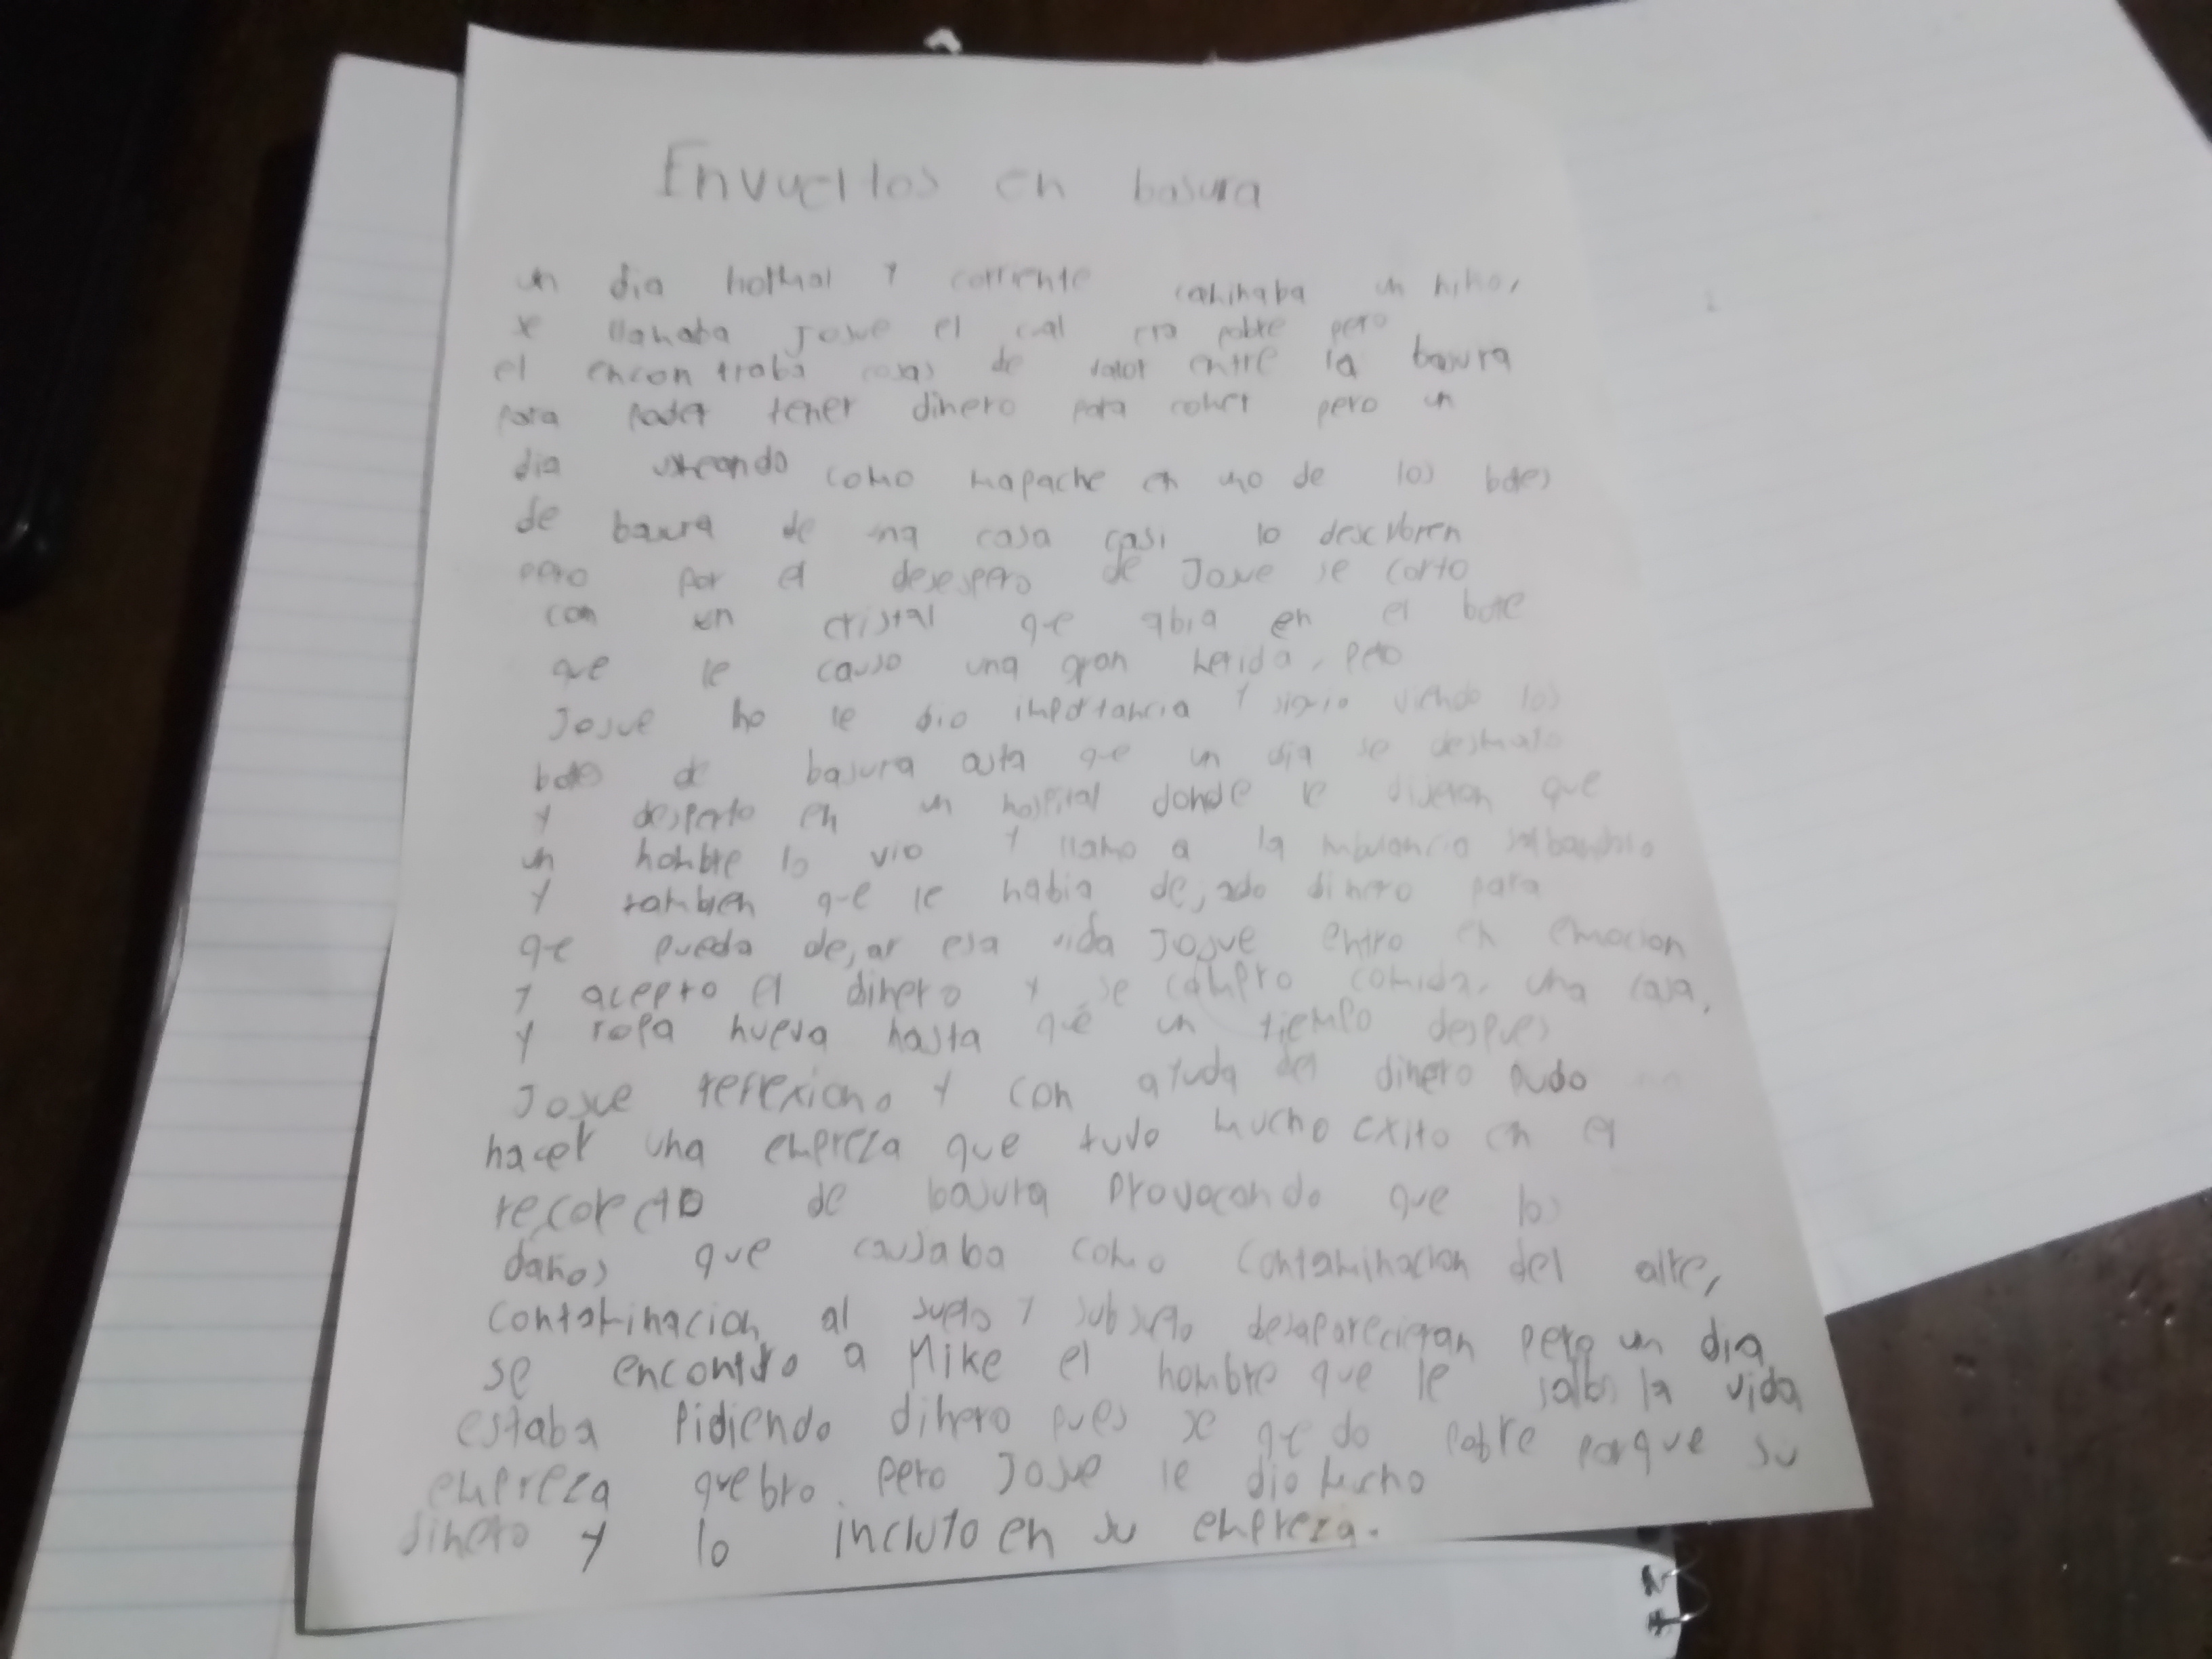 Envueltos en basura
un dia normal y corriente caminaba un niño,
se llamaba Josue el cual era pobre pero
el encontraba cosas de valor entre la basura
para poder tener dinero para comer pero un
dia como mapache en uno de los botes
de basura de una casa casi lo descubren
pero por el desespero de Josue se corto
con un cristal que abia en el bote
que le causo una gran herida, pero
Josue no le dio importancia y siguio viendo los
botes de basura asta que un dia se desmallo
y desperto en un hospital donde le dijeron que
un hombre lo vio y llamo a la
y tambien que le habia dejado dinero para
que pueda dejar esa vida Josue entro en emocion
y acepto el dinero y se compro comida, una casa,
y ropa nueva hasta que un tiempo despues
Josue reflexiono y con ayuda del dinero pudo
hacer una empreza que tuvo mucho exito en el
recolecto de basura provocando que los
daños que causaba como contaminacion del aire,
contaminacion al suelo y subsuelo desaparecieran pero un dia
se encontro a Mike el hombre que le salbo la vida
estaba pidiendo dinero pues se quedo pobre porque su
empreza quebro. pero Josue le dio mucho
dinero y lo incluto en su empreza.